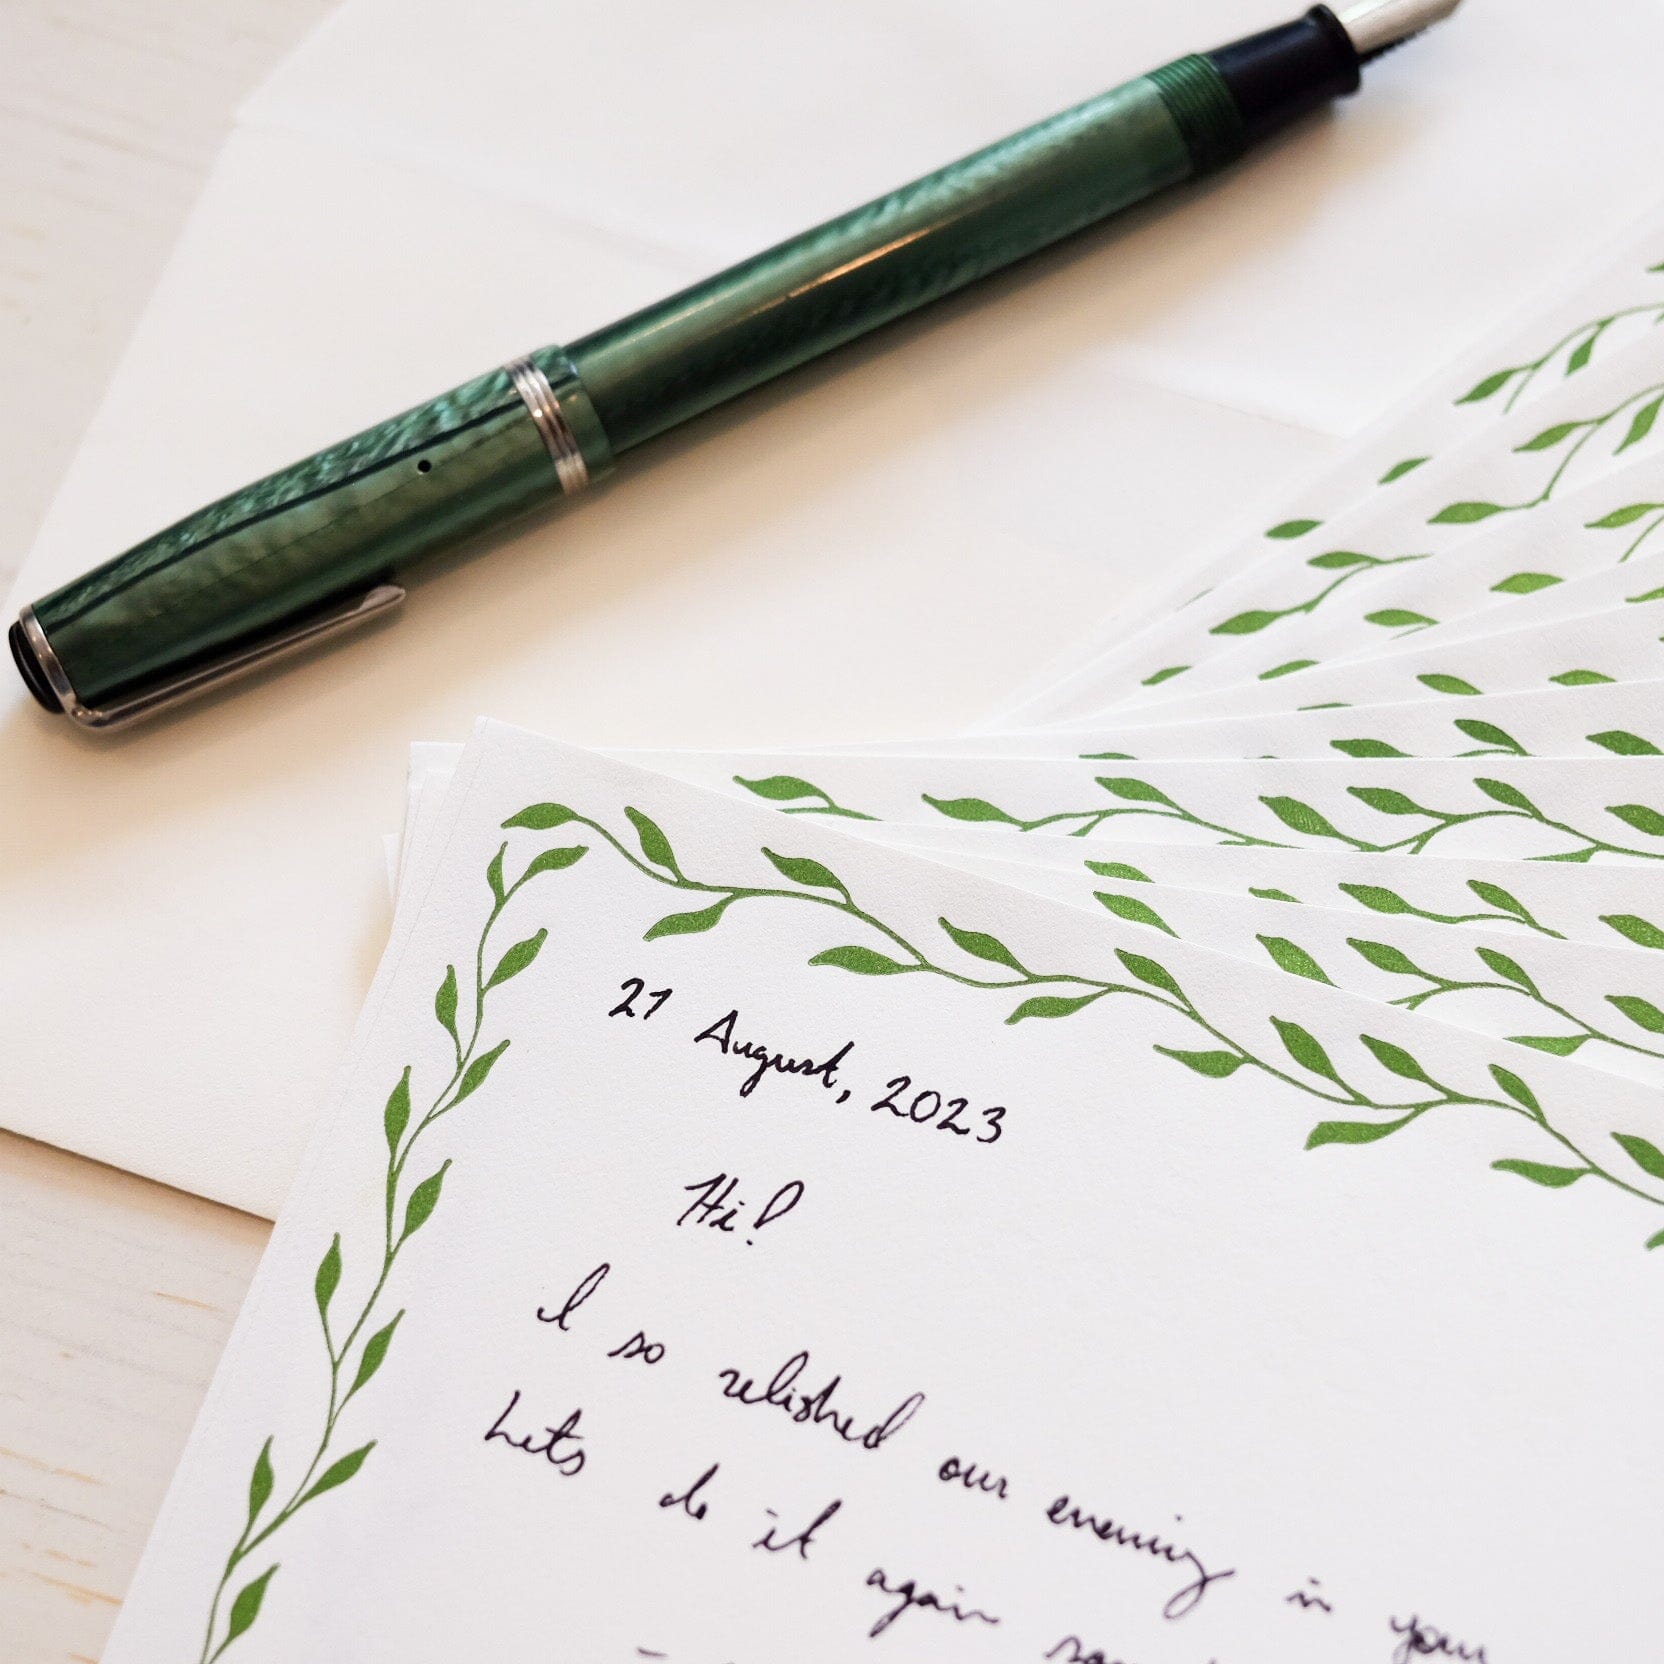 21 August, 2023
Hi!
I so relished our evening in your
Lets do it again